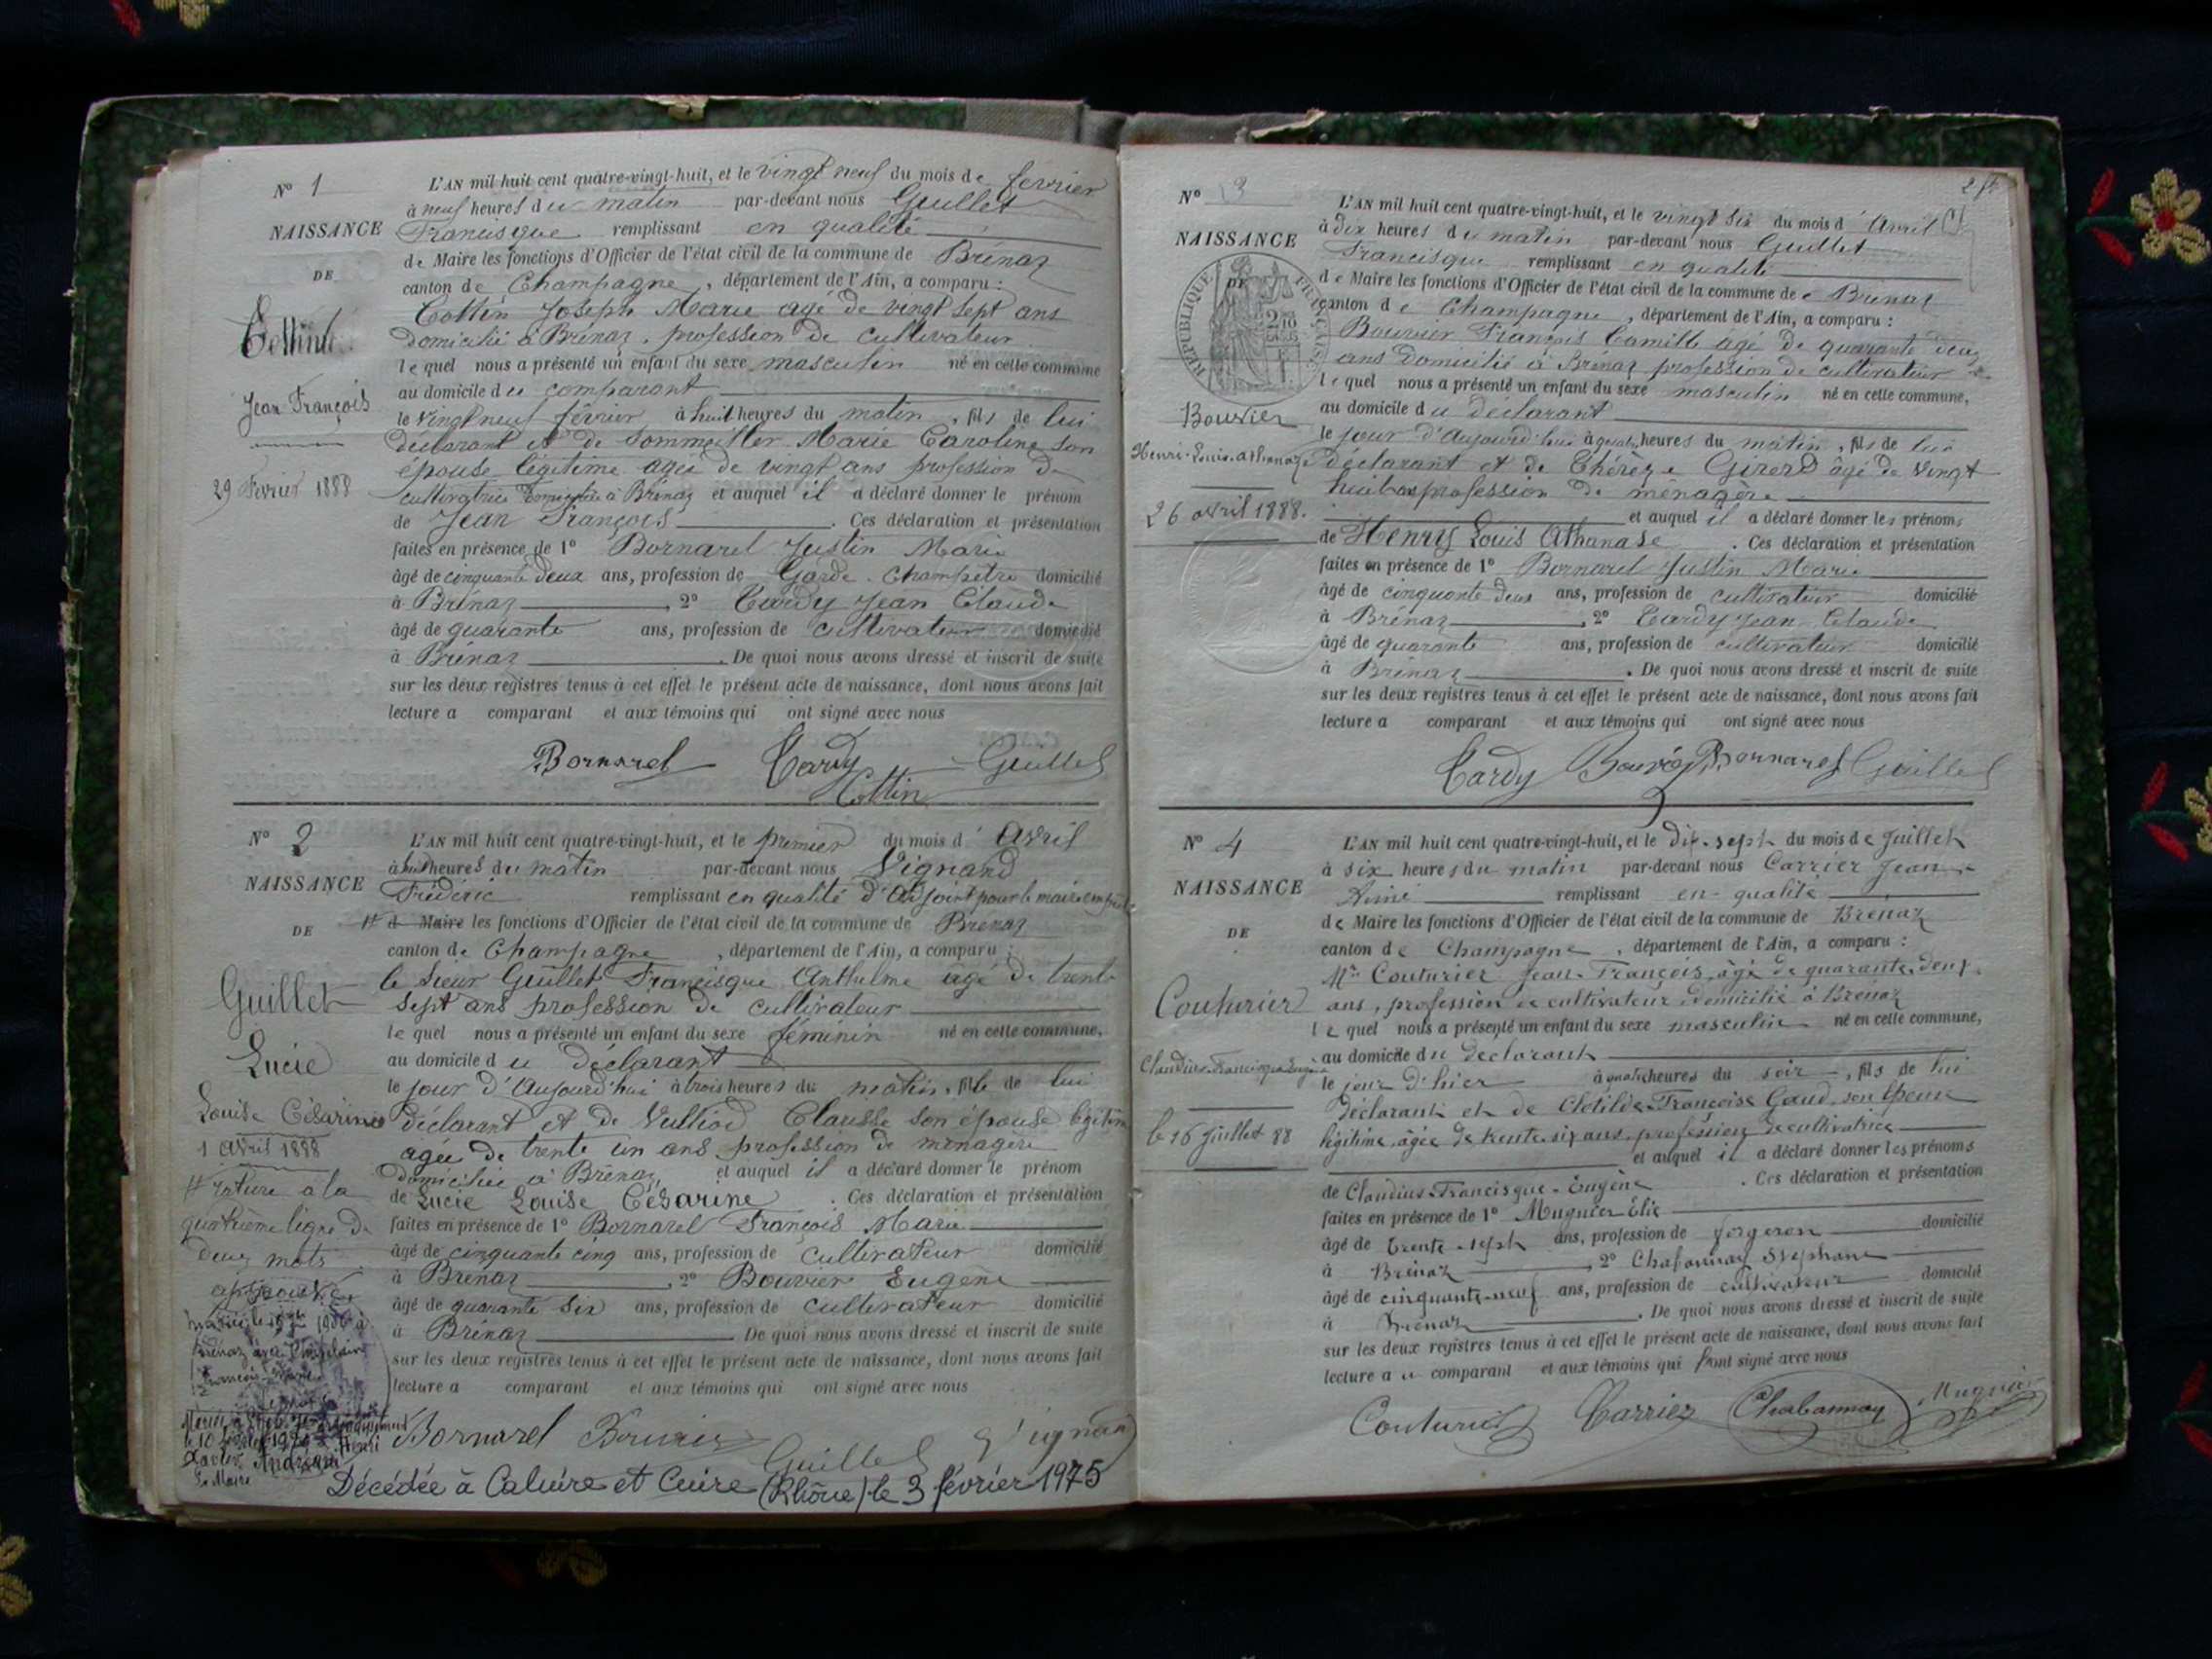 N° 1
NAISSANCE
DE
Cottin
Jean François
29 Février 1888
L'AN mil huit cent quatre-vingt-huit, et le vingt neuf du mois de fevrier
à neuf heures du matin par-devant nous Guillet
Francisque remplissant en qualité
de Maire les fonctions d'Officier de l'état civil de la commune de Brénaz
canton de Champagne, département de l'Ain, a comparu :
Cottin Joseph Marie agé de vingt sept ans
domicilié à Brénaz, profession de cultivateur
lequel nous a présenté un enfant du sexe masculin né en cette commune
au domicile du comparant
le vingt neuf février à huit heures du matin, fils de lui
déclarant et de Sommeiller Marie Caroline son
épouse légitime agée de vingt ans profession de
cultivatrice domiciliée à Brénaz et auquel il a déclaré donner le prénom
de Jean François. Ces déclaration et présentation
faites en présence de 1° Bornarel Justin Marie
âgé de cinquante deux ans, profession de Garde-Champêtre domicilié
à Brénaz, 2° Tardy Jean Claude
âgé de quarante ans, profession de cultivateur domicilié
à Brénaz. De quoi nous avons dressé et inscrit de suite
sur les deux registres tenus à cet effet le présent acte de naissance, dont nous avons fait
lecture a comparant et aux témoins qui ont signé avec nous
Bornarel Tardy Guillet
Cottin
N° 2
NAISSANCE
DE
Guillet
Lucie
Louise Césarine
1 Avril 1888
# rature à la
quatrième ligne de
deux mots
approuvée
L'AN mil huit cent quatre-vingt-huit, et le premier du mois d'Avril
à huit heures du matin par-devant nous Vignand
Fréderic remplissant en qualité d'Adjoint pour le maire
# de Maire les fonctions d'Officier de l'état civil de la commune de Brénaz
canton de Champagne, département de l'Ain, a comparu :
le Sieur Guillet Francisque Anthelme agé de trente
sept ans profession de cultivateur
lequel nous a présenté un enfant du sexe féminin né en cette commune,
au domicile du déclarant
le jour d'Aujourd'hui à trois heures du matin, fille de lui
déclarant et de Vulliod Clausse son épouse légitime
agée de trente un ans profession de ménagère
domiciliée à Brénaz, et auquel il a déclaré donner le prénom
de Lucie Louise Césarine. Ces déclaration et présentation
faites en présence de 1° Bornarel François Marie
âgé de cinquante cinq ans, profession de cultivateur domicilié
à Brénaz, 2° Bouvier Eugène
âgé de quarante six ans, profession de cultivateur domicilié
à Brénaz. De quoi nous avons dressé et inscrit de suite
sur les deux registres tenus à cet effet le présent acte de naissance, dont nous avons fait
lecture a comparant et aux témoins qui ont signé avec nous
Bornarel Bouvier Guillet Vignand
Décédée à Caluire et Cuire (Rhône) le 3 février 1975
N° 3
NAISSANCE
DE
RÉPUBLIQUE FRANÇAISE
Bouvier
Henri-Louis-Athanaze
26 avril 1888.
L'AN mil huit cent quatre-vingt-huit, et le vingt six du mois d'Avril
à dix heures du matin par-devant nous Guillet
Francisque remplissant en qualité
de Maire les fonctions d'Officier de l'état civil de la commune de Brénaz
canton de Champagne, département de l'Ain, a comparu :
Bouvier François Camille agé de quarante deux
ans domicilié à Brénaz profession de cultivateur
lequel nous a présenté un enfant du sexe masculin né en cette commune,
au domicile du déclarant
le jour d'Aujourd'hui à quatre heures du matin, fils de lui
déclarant et de Thérèze Girerd âgé de vingt
huit ans profession de ménagère
et auquel il a déclaré donner les prénoms
de Henry Louis Athanase. Ces déclaration et présentation
faites en présence de 1° Bornarel Justin Marie
âgé de cinquante deux ans, profession de cultivateur domicilié
à Brénaz, 2° Tardy Jean Claude
âgé de quarante ans, profession de cultivateur domicilié
à Brénaz. De quoi nous avons dressé et inscrit de suite
sur les deux registres tenus à cet effet le présent acte de naissance, dont nous avons fait
lecture a comparant et aux témoins qui ont signé avec nous
Tardy Bouvier Bornarel Guillet
N° 4
NAISSANCE
DE
Couturier
Claudius-Francisque-Eugène
le 16 Juillet 88
L'AN mil huit cent quatre-vingt-huit, et le dix-sept du mois de Juillet
à six heures du matin par-devant nous Carrier Jean-
Aimé remplissant en qualité
de Maire les fonctions d'Officier de l'état civil de la commune de Brénaz
canton de Champagne, département de l'Ain, a comparu :
Mr Couturier Jean-François, âgé de quarante-deux
ans, profession de cultivateur, domicilié à Brénaz
lequel nous a présenté un enfant du sexe masculin né en cette commune,
au domicile du déclarant
le jour d'hier à quatre heures du soir, fils de lui
déclarant et de Clotilde-Françoise Gaud, son épouse
légitime, âgée de trente-six ans, profession de cultivatrice
et auquel il a déclaré donner les prénoms
de Claudius-Francisque-Eugène. Ces déclaration et présentation
faites en présence de 1° Mugnier Elie
âgé de trente-sept ans, profession de forgeron domicilié
à Brénaz, 2° Chabannay Stéphane
âgé de cinquante-neuf ans, profession de cultivateur domicilié
à Brénaz. De quoi nous avons dressé et inscrit de suite
sur les deux registres tenus à cet effet le présent acte de naissance, dont nous avons fait
lecture au comparant et aux témoins qui ont signé avec nous
Couturier Carrier Chabannay Mugnier